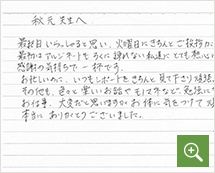 秋元先生へ
最終日いらっしゃると思い、火曜日にきちんとご挨拶が
最初はアルジネートもろくに練れない私達にとても熱心に
感謝の気持ちで一杯です。
お忙しいのに、いつもレポートをきちんと見て下さり
その他も、色々と楽しいお話やモリタ等など、勉強に
お仕事、大変だと思いますがお体に気をつけて
本当にありがとうございました。